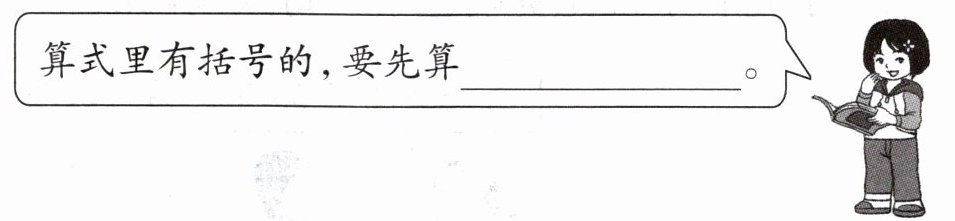 算式里有括号的，要先算__________。